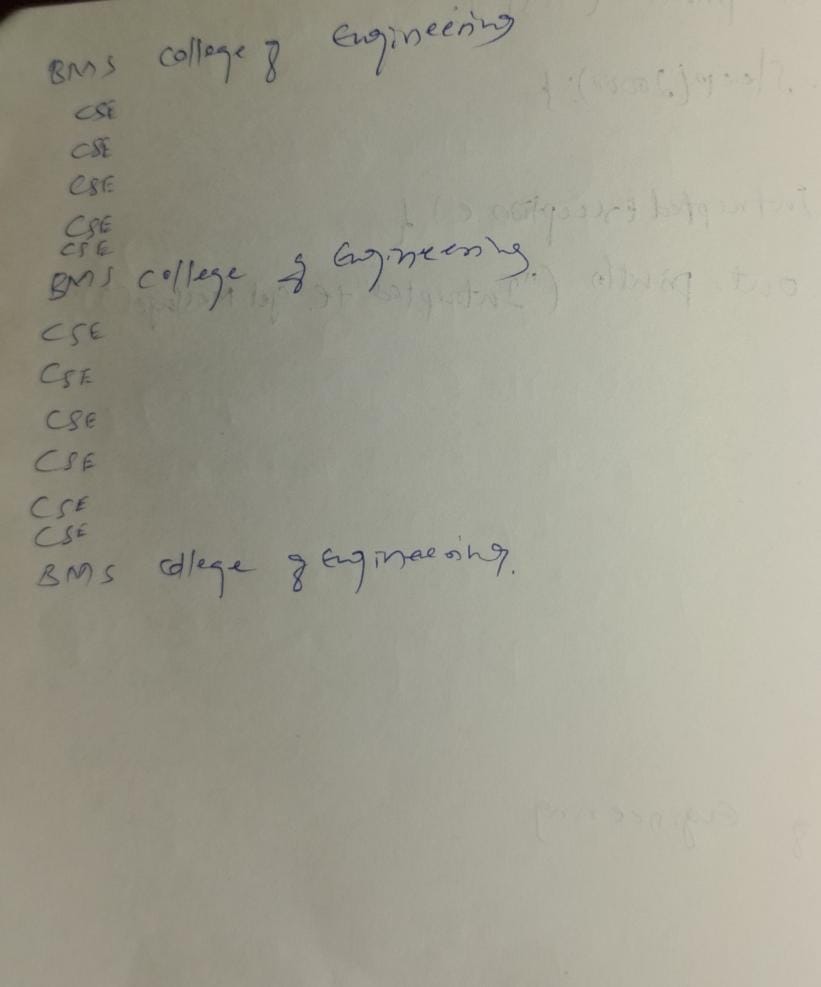 BMS college of Engineering
CSE
CSE
CSE
CSE
CSE
BMS college of Engineering.
CSE
CSE
CSE
CSE
CSE
CSE
BMS college of Engineering.